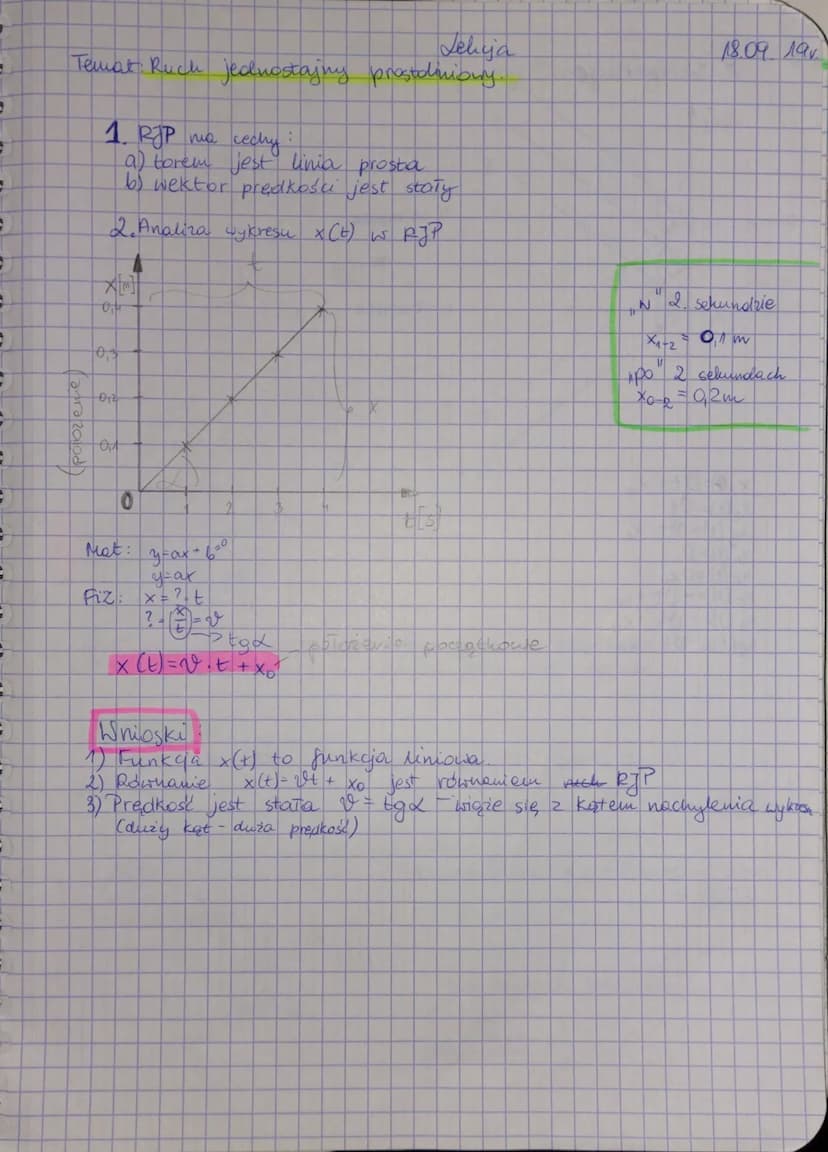 Lekcja 18.09.19r.
Temat: Ruch jednostajny prostoliniowy.
1. RJP ma cechy:
a) torem jest linia prosta
b) wektor prędkości jest stały
2. Analiza wykresu x(t) w RJP
t
x[m]
0,4
0,3
0,2
0,1
0
(położenie)
x
α
1 2 3 4
t[s]
„W" 2. sekundzie
x₁₋₂ = 0,1 m
„po" 2 sekundach
x₀₋₂ = 0,2m
Mat: y=ax+b⁼⁰
y=ax
Fiz: x = ? · t
? = x/t = v
→ tgα
x(t)=v·t + x₀ - położenie początkowe
Wnioski:
1) Funkcja x(t) to funkcja liniowa.
2) Równanie x(t)=vt + x₀ jest równaniem ruch RJP
3) Prędkość jest stała v = tgα - wiąże się z kątem nachylenia wykresu
(duży kąt - duża prędkość)